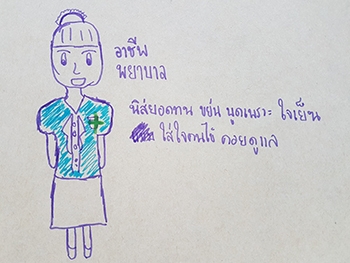 อาชีพ
พยาบาล
นิสัยอดทน ขยัน พูดเพราะ ใจเย็น
ใส่ใจคนไข้ คอยดูแล